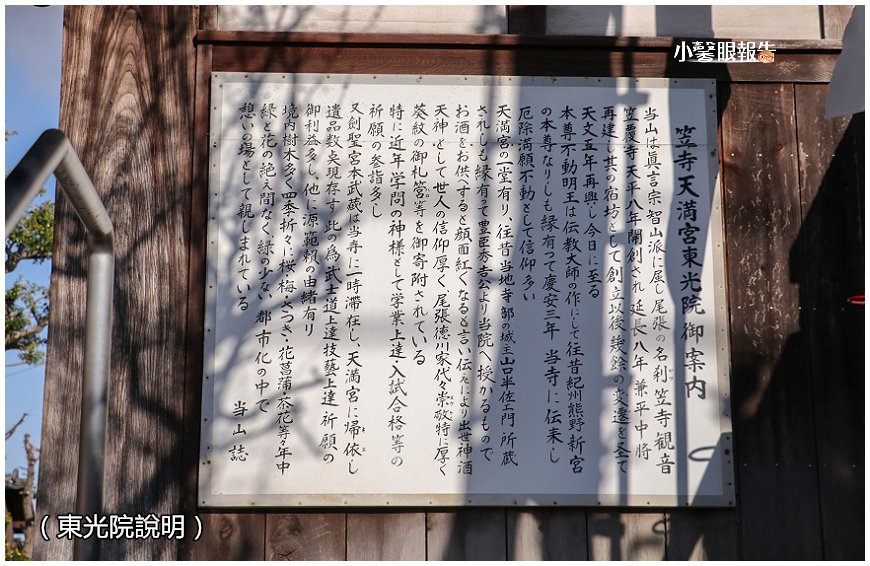 小馨眼報告
笠寺天満宮東光院御案内
当山は眞言宗智山派に属し尾張の名刹笠寺観音
笠覆寺天平八年開創され延長八年兼平中将
再建し其の宿坊として創立以後幾餘の変遷を圣て
天文五年再興し今日に至る
本尊不動明王は伝教大師の作にして往昔紀州熊野新宮
の本尊なりしも縁有って慶安三年 当寺に伝来し
厄除満願不動として信仰多い
天満宮の一堂有り、往昔当地寺部の城主山口半佐エ門所蔵
されしも縁有って豊臣秀吉公より当院へ授かるもので
お酒をお供すると顔面紅くなると言い伝えにより出世神酒
天神として世人の信仰厚く尾張徳川家代々崇敬特に厚く
葵紋の御札筥等を御寄附されている
特に近年学問の神様として学業上達、入試合格等の
祈願の参指多し
又剣聖宮本武蔵は当寺に一時滞在し、天満宮に帰依し
遺品数点現存す此の為武士道上達技藝上達祈願の
御利益多し、他に源範頼の由緒有り
境内樹木多く四季折々に桜・梅・さつき・花菖蒲・茶花等々年中
緑と花の絶え間なく緑の少ない都市化の中で
憩いの場として親しまれている
当山誌
(東光院說明)